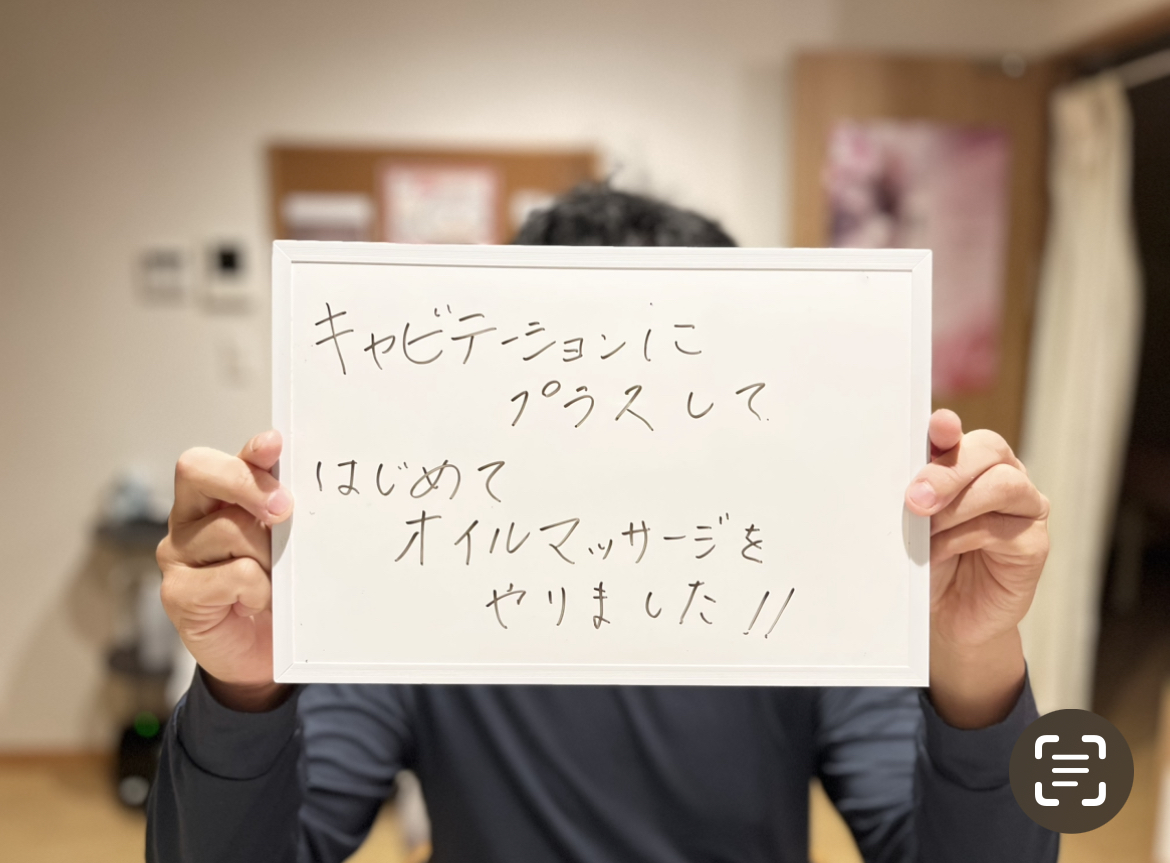 キャビテーションに
プラスして
はじめて
オイルマッサージを
やりました!!